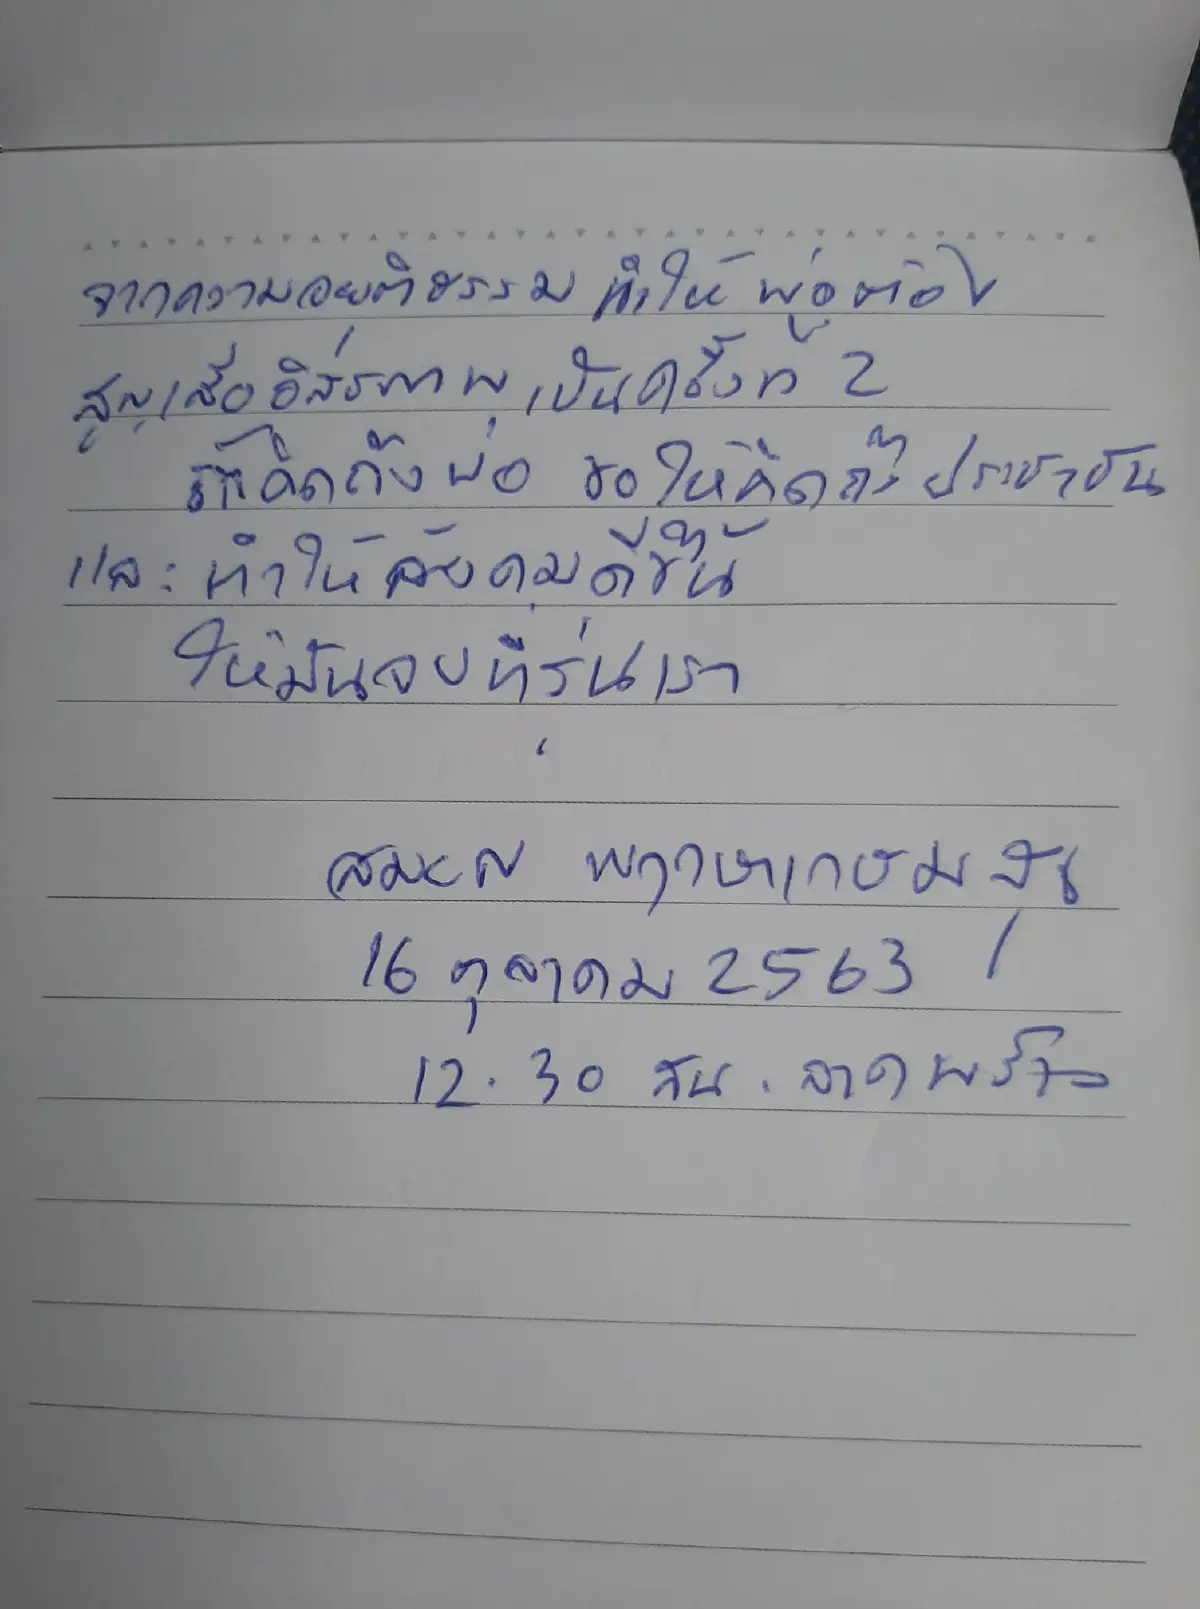 จากความอยุติธรรม ทำให้ พ่อต้อง
สูญเสียอิสรภาพ เป็นครั้งที่ 2
ถ้าคิดถึงพ่อ ขอให้คิดถึงประชาชน
และทำให้สังคมดีขึ้น
ให้มันจบที่รุ่นเรา
สมยศ พฤกษาเกษมสุข
16 ตุลาคม 2563
12.30 สน. ลาดพร้าว